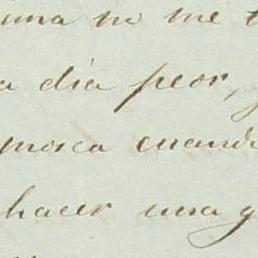 no me
día peor,
mosca cuando
hacer una